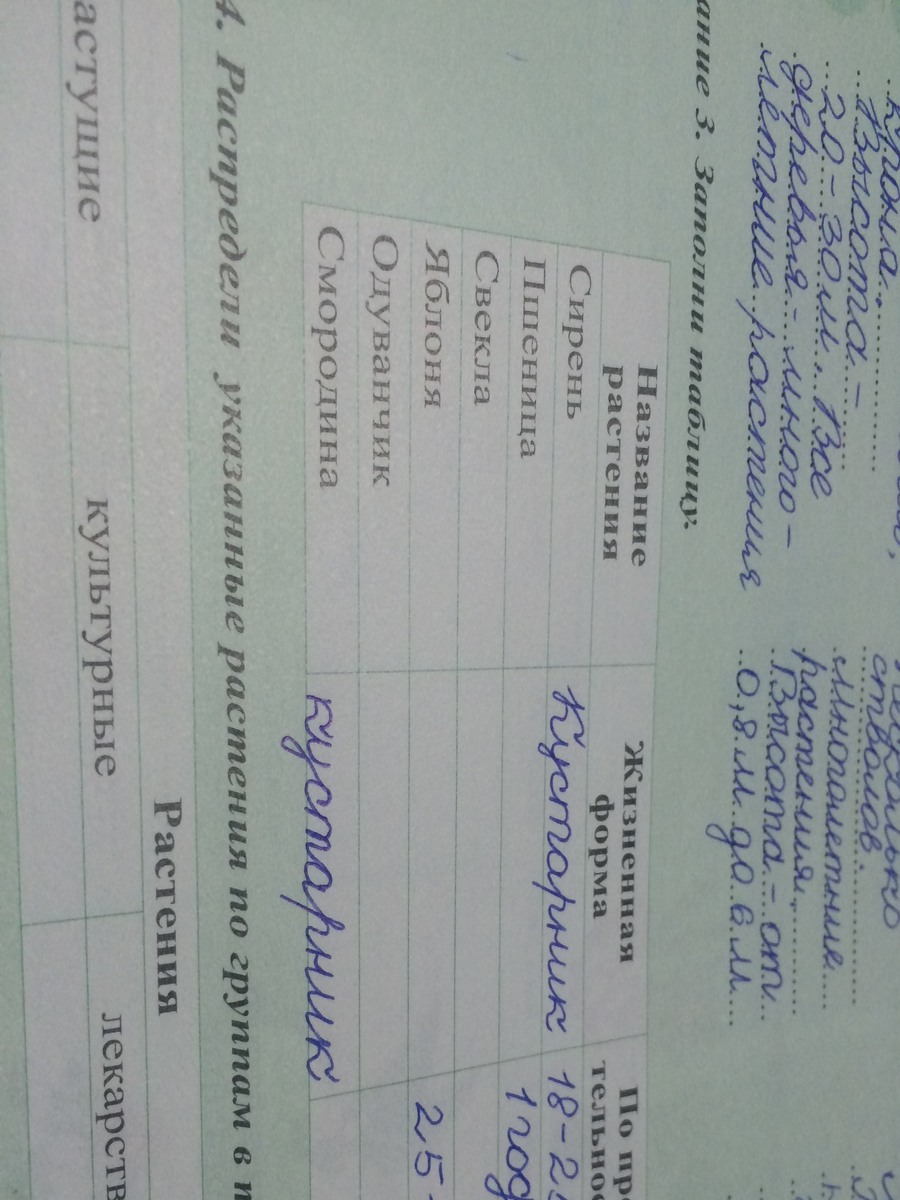 крона.
Высота -
20-30м. Все
деревья - много-
летние растения
ствола.
многолетние
растения.
Высота - от
0,8 м. до 6 м.
ание 3. Заполни таблицу.
Название растения
Жизненная форма
Сирень Кустарник
Пшеница 1 год
Свекла
Яблоня
Одуванчик
Смородина кустарник
4. Распредели указанные растения по группам в
Растения
астущие культурные лекарств